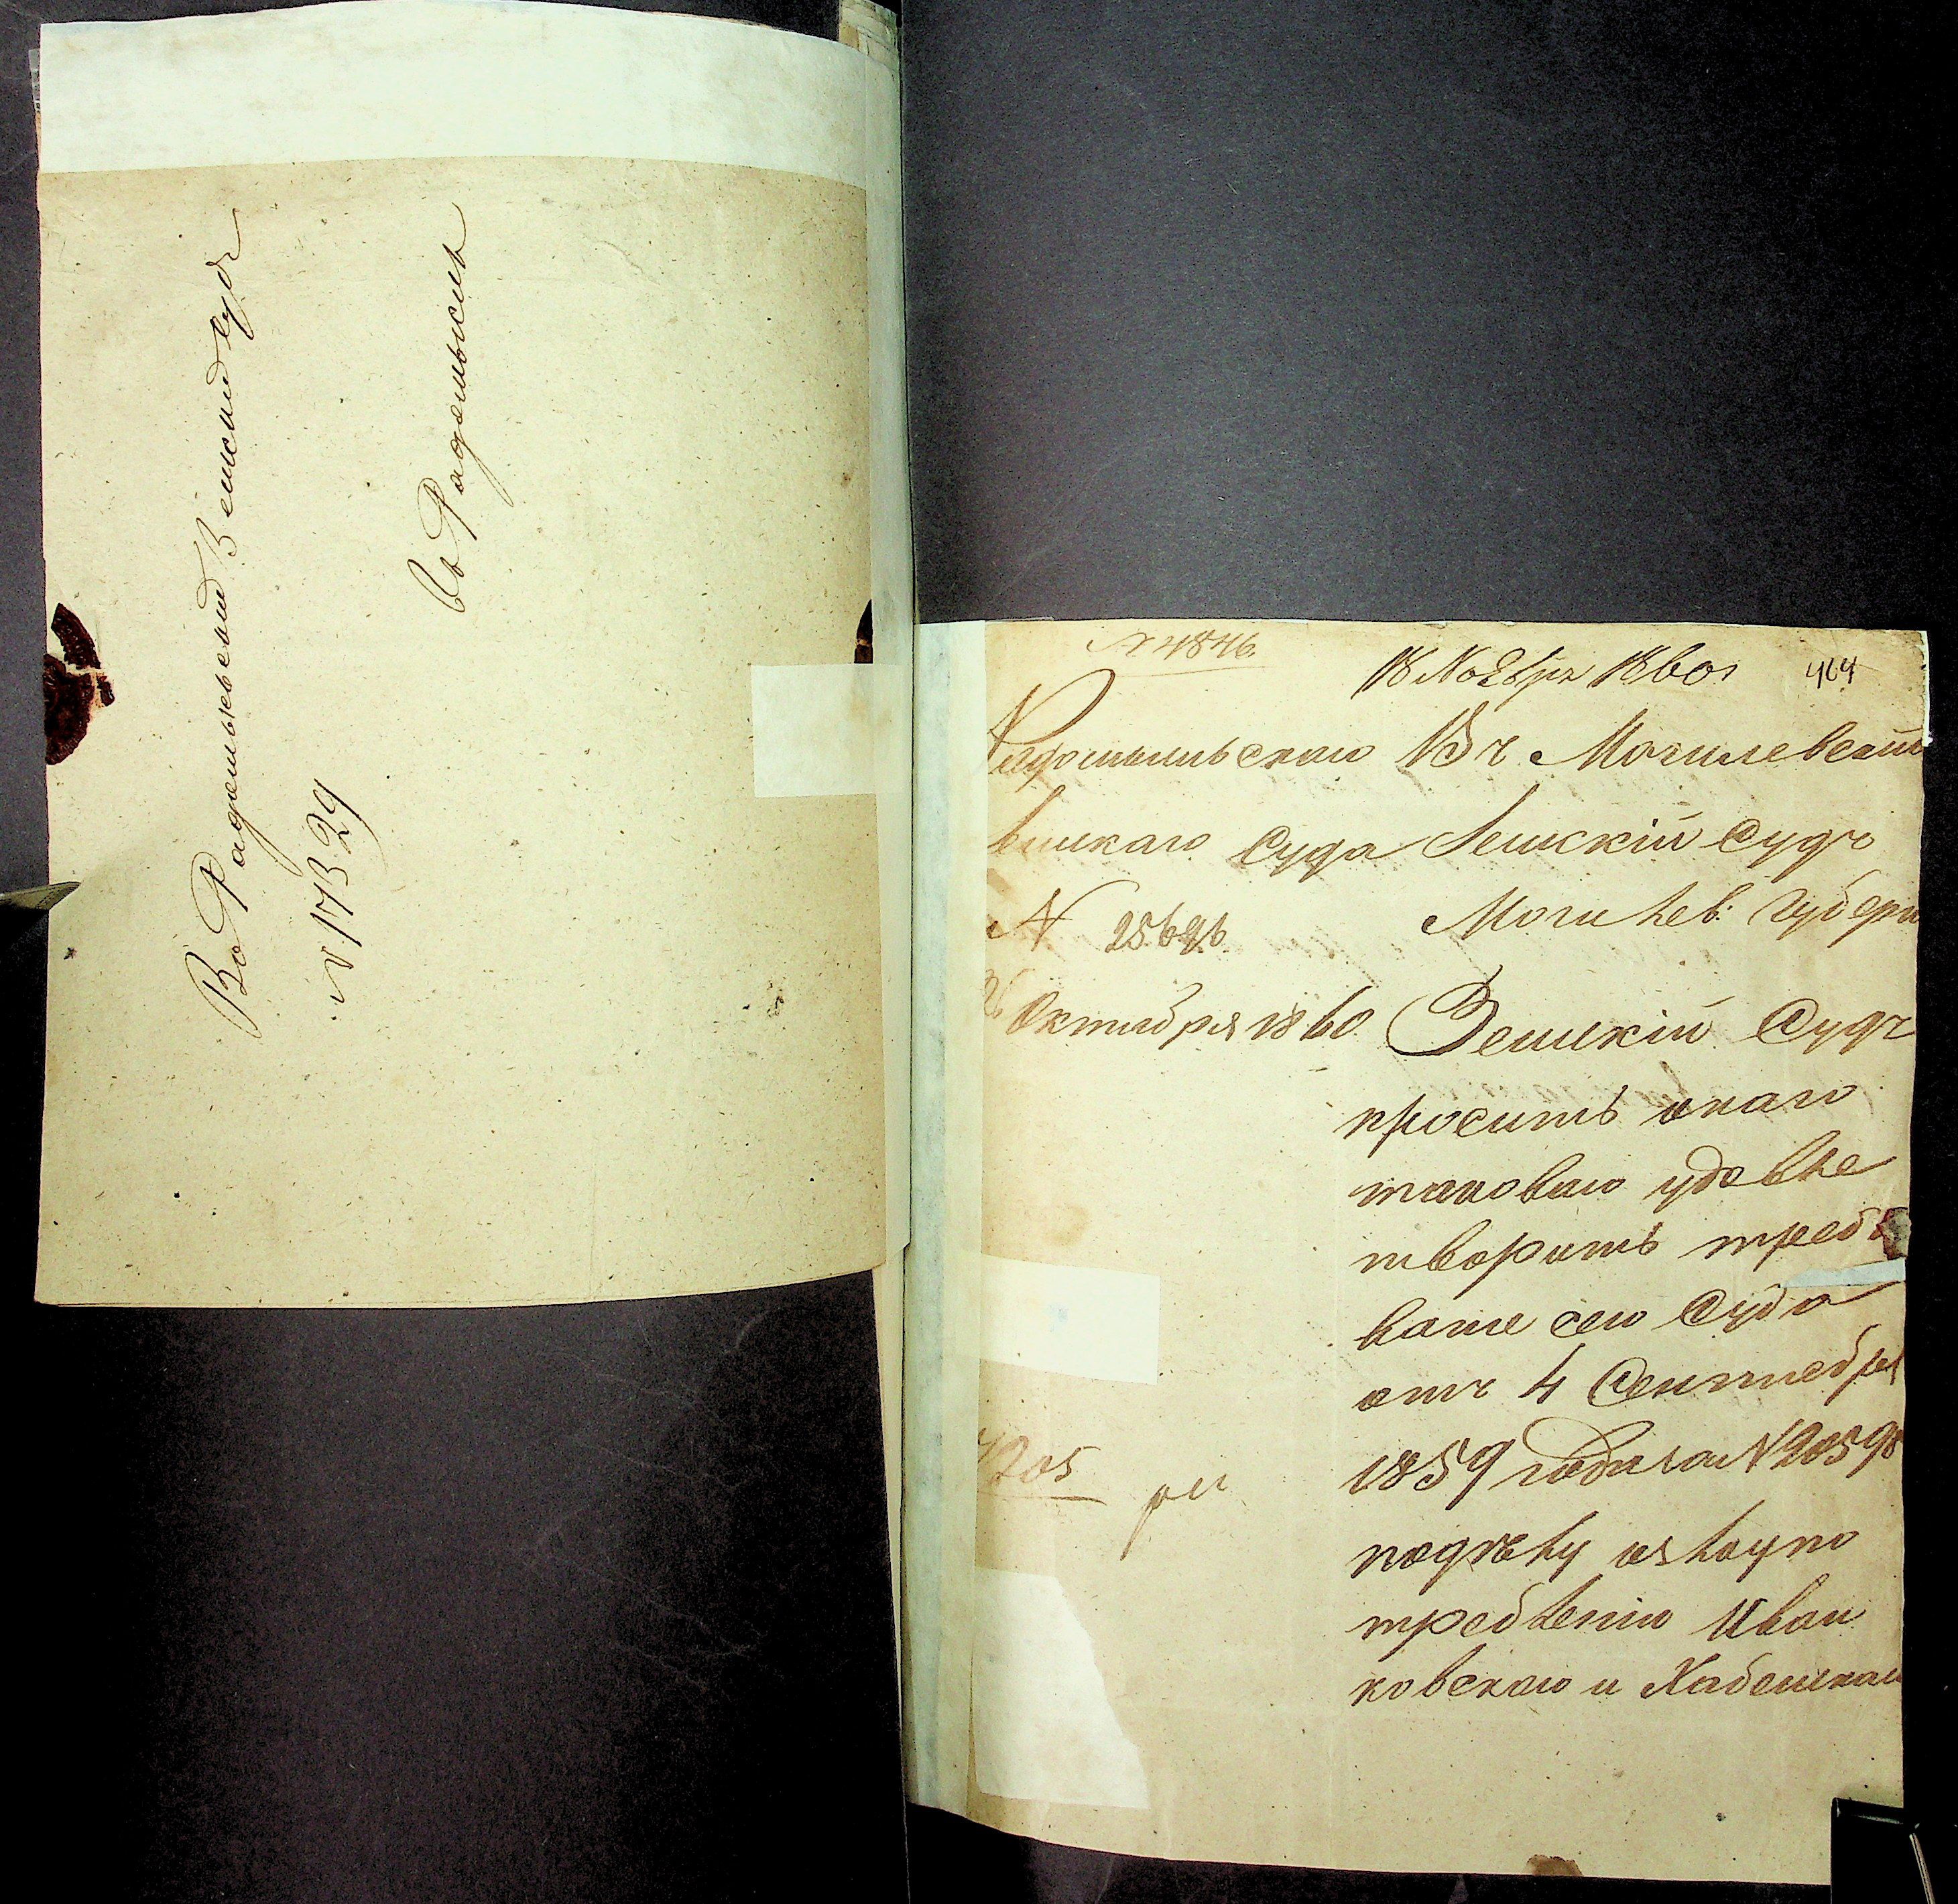 Въ Радомысльскій Земскій Судъ
N 17329
въ Радомыслѣ
N 4846.
18 Ноября 1860 г
464
Радомысльскаго
Земскаго Суда
N 25626
Октября 1860
Въ Могилевскій
Земскій Судъ
Могилев: Губерн
Земскій Судъ
проситъ онаго
таковаго удовле
творить требо
ваніе сего Суда
отъ 4 Сентября
1859 года за N 20598
по дѣлу о злоупо
требленіи Иван
ковскаго и